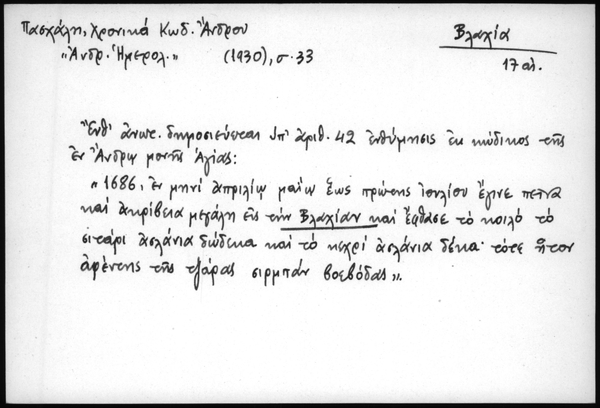 Πασχάλη, Χρονικά Κωδ. Ἄνδρου
Βλαχία
"Ἀνδρ. Ἡμερολ." (1930), σ. 33
17 αἰ.
Ἔνθ' ἀνωτ. δημοσιεύεται ὑπ' ἀριθ. 42 ἐνθύμησις ἐκ κώδικος τῆς
ἐν Ἄνδρῳ μονῆς Ἁγίας:
"1686, ἐν μηνὶ ἀπριλίῳ μαΐῳ ἕως πρώτης ἰουλίου ἔγινε πεῖνα
καὶ ἀκρίβεια μεγάλη εἰς τὴν Βλαχίαν καὶ ἔφθασε τὸ κοιλὸ τὸ
σιτάρι ἀσλάνια δώδεκα καὶ τὸ κεχρὶ ἀσλάνια δέκα· τότε ἦτον
ἀφέντης τῆς τζάρας σιρμπὰν βοεβόδας".